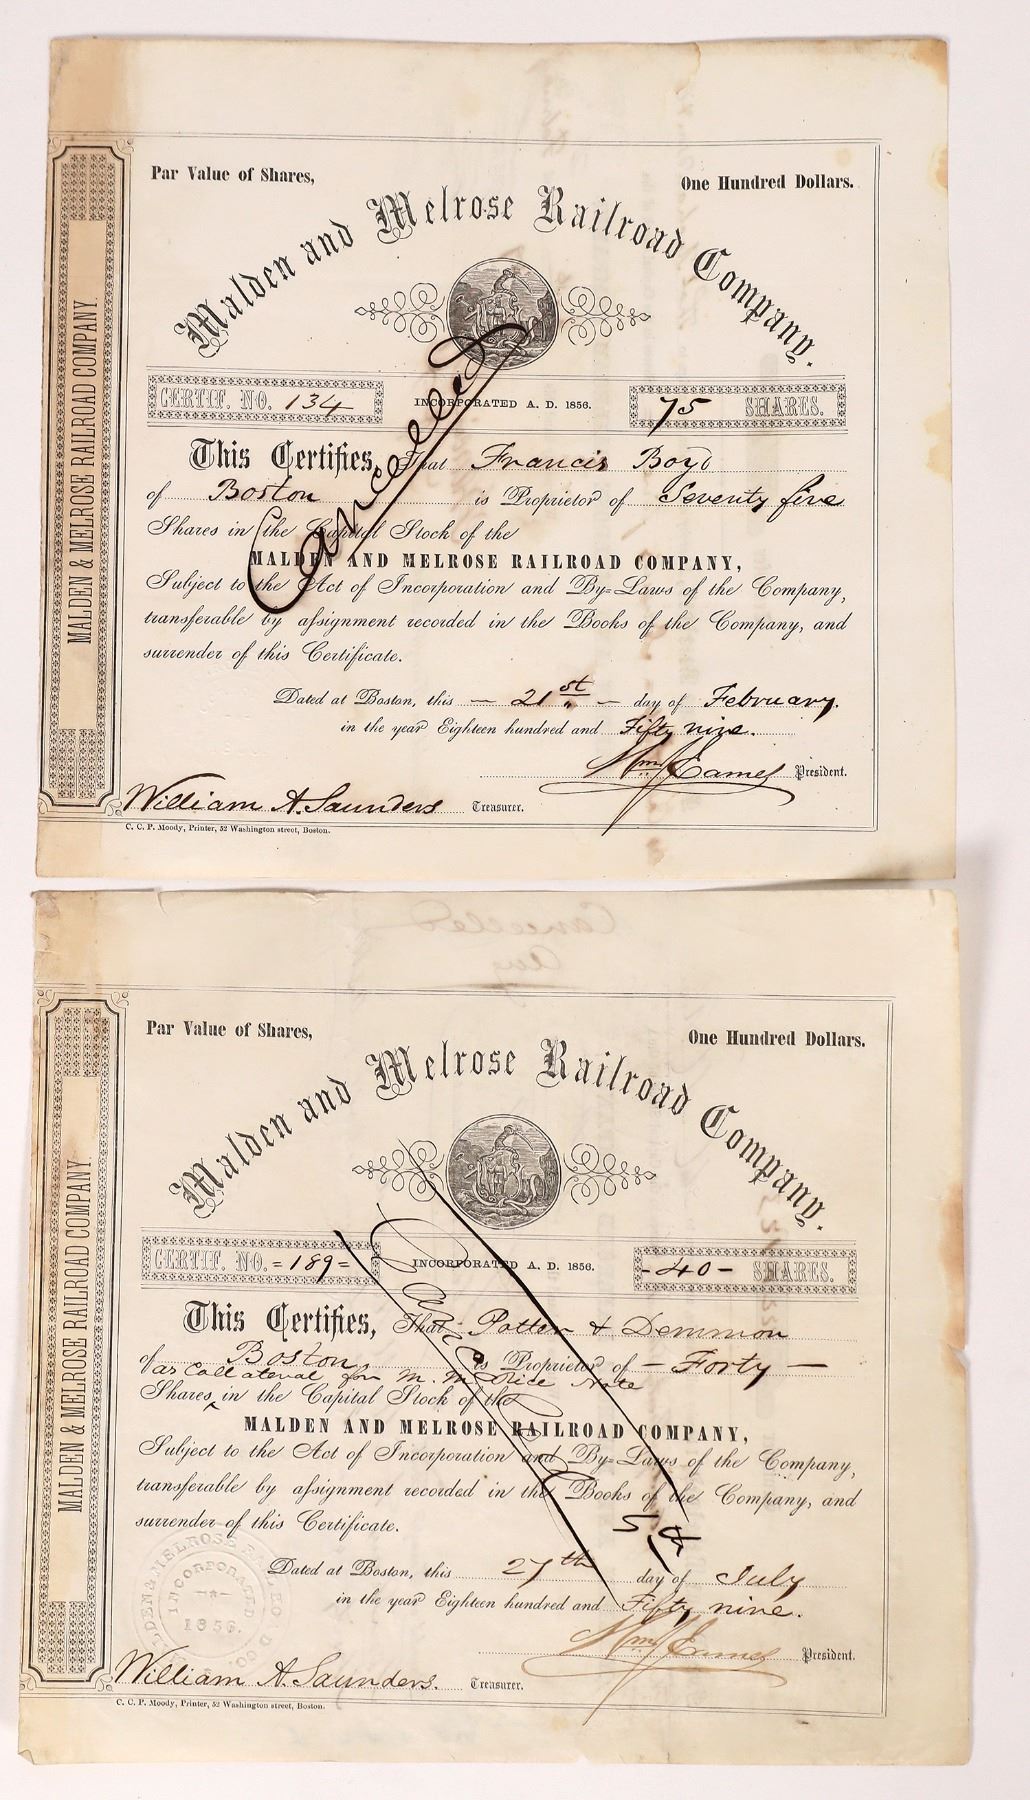 Par Value of Shares,
One Hundred Dollars.
Malden and Melrose Railroad Company.
MALDEN & MELROSE RAILROAD COMPANY.
CERTIF. NO. 134
INCORPORATED A. D. 1856.
75 SHARES.
Cancelled
This Certifies, That Francis Boyd
of Boston is Proprietor of Seventy five
Shares in the Capital Stock of the
MALDEN AND MELROSE RAILROAD COMPANY,
Subject to the Act of Incorporation and By=Laws of the Company,
transferable by assignment recorded in the Books of the Company, and
surrender of this Certificate.
Dated at Boston, this — 21st — day of February.
in the year Eighteen hundred and Fifty nine.
Wm Eames President.
William A. Saunders Treasurer.
C. C. P. Moody, Printer, 52 Washington street, Boston.
Cancelled
Aug
Par Value of Shares,
One Hundred Dollars.
Malden and Melrose Railroad Company.
MALDEN & MELROSE RAILROAD COMPANY.
CERTIF. NO. =189=
INCORPORATED A. D. 1856.
-40- SHARES.
Cancelled
This Certifies, That Potter & Demmon
of Boston is Proprietor of — Forty —
as Collateral for M. M. Rice Note
Shares in the Capital Stock of the
MALDEN AND MELROSE RAILROAD COMPANY,
Subject to the Act of Incorporation and By=Laws of the Company,
transferable by assignment recorded in the Books of the Company, and
surrender of this Certificate.
5th
Dated at Boston, this 27th day of July
in the year Eighteen hundred and Fifty nine.
Wm Eames President.
MALDEN & MELROSE RAILROAD CO.
INCORPORATED
1856.
William A. Saunders. Treasurer.
C. C. P. Moody, Printer, 52 Washington street, Boston.